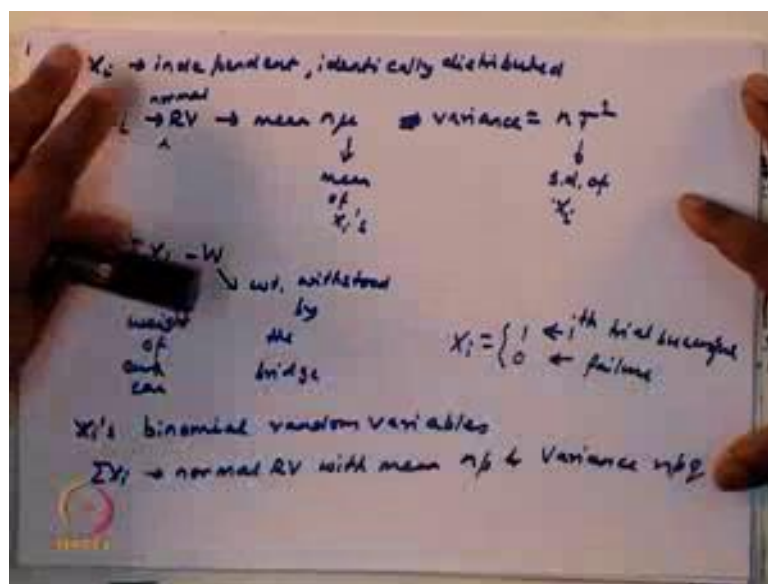 Xi → independent, identically distributed
normal
→ RV → mean nμ variance = nσ²
↓ ↓
mean s.d. of
of Xi
Xi's
Xi - W
↘ wt. withstood
by
weight the
of bridge
each
car
Xi = { 1 ← ith trial successful
0 ← failure
Xi's binomial random variables
ΣXi → normal RV with mean np & Variance npq